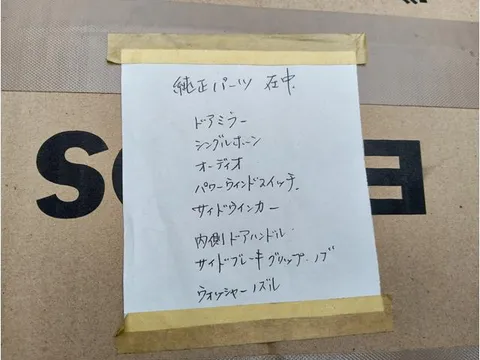 純正パーツ 在中
ドアミラー
シングルホーン
オーディオ
パワーウィンドスイッチ
サイドウインカー
内側ドアハンドル
サイドブレーキグリップ・ノブ
ウォッシャーノズル